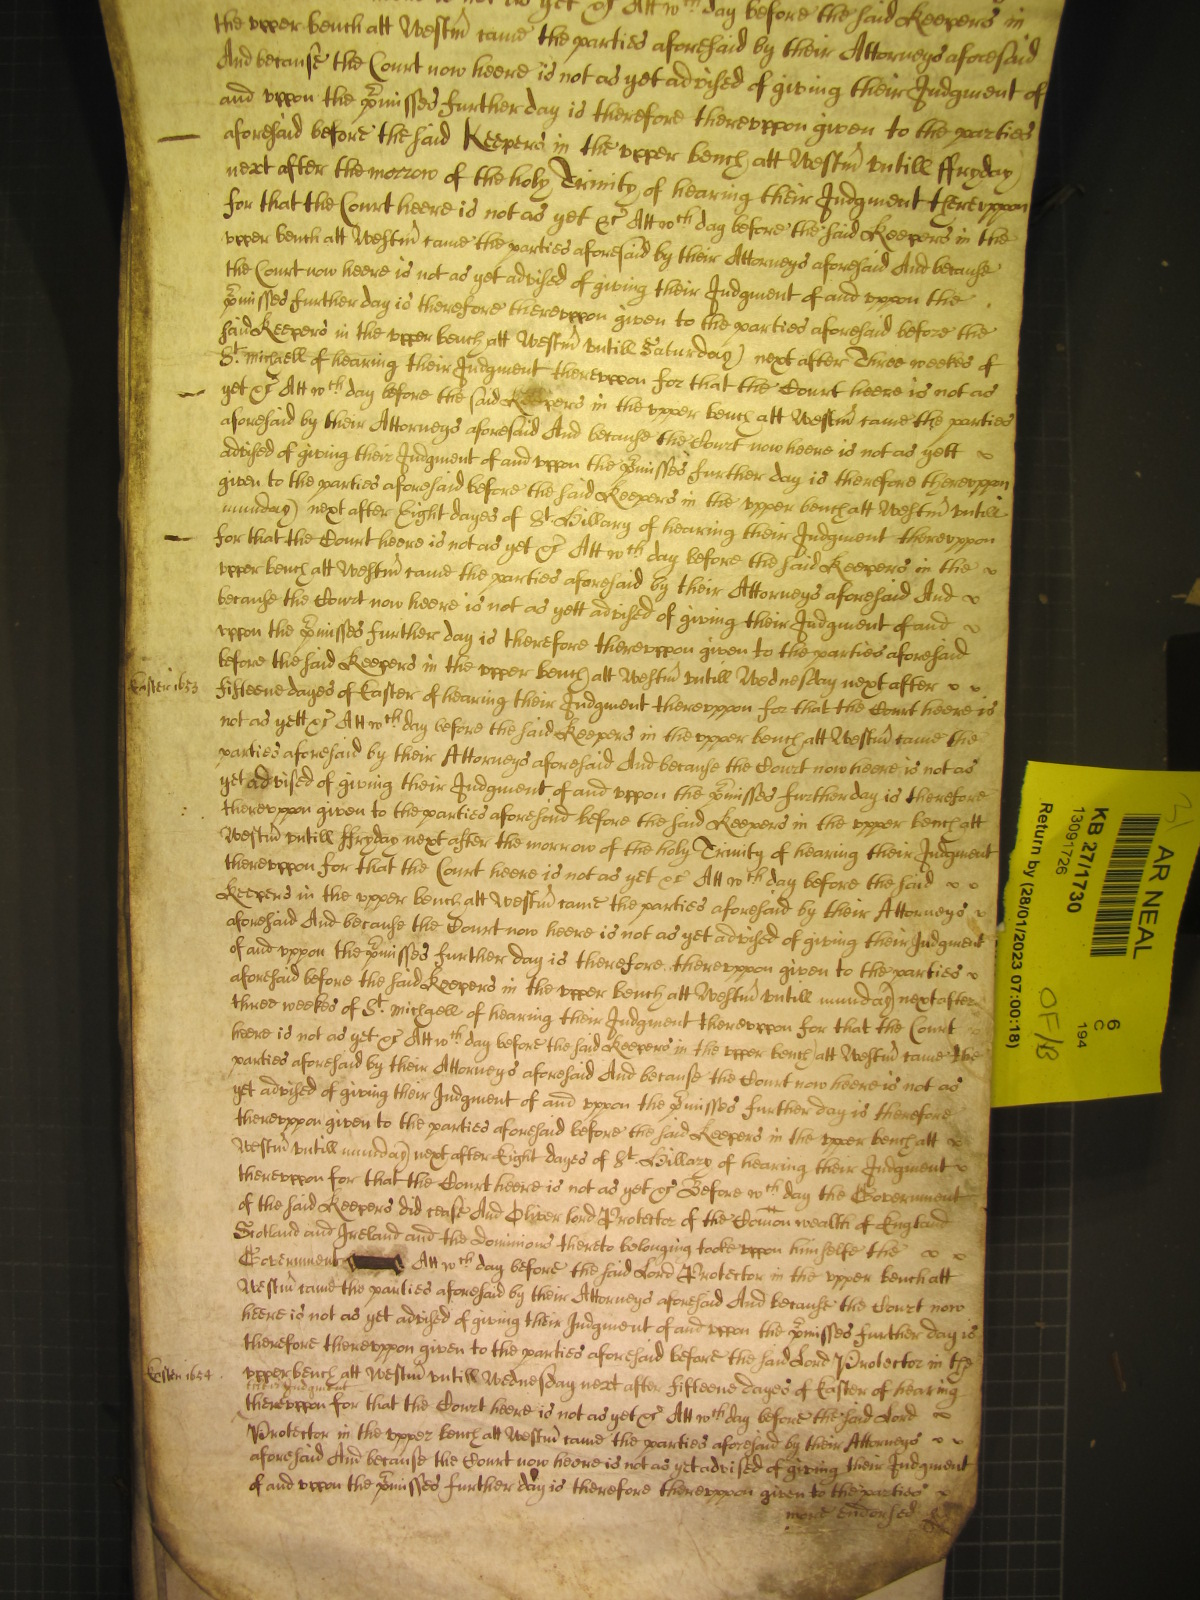 not as yet &c Att wch day before the said Keepers in
the vpper bench att Westm̃ came the parties aforesaid by their Attorneys aforesaid
And because the Court now heere is not as yet advised of giving their Judgment of
and vppon the p̃misses further day is therefore therevppon given to the parties
aforesaid before the said Keepers in the vpper bench att Westm̃ vntill ffryday
next after the morrow of the holy Trinity of hearing their Judgment therevppon
for that the Court heere is not as yet &c Att wch day before the said Keepers in the
vpper bench att Westm̃ came the parties aforesaid by their Attorneys aforesaid And because
the Court now heere is not as yet advised of giving their Judgment of and vppon the
p̃misses further day is therefore therevppon given to the parties aforesaid before the
said Keepers in the vpper bench att Westm̃ vntill Saturday next after Three weekes of
St. Michaell of hearing their Judgment therevppon for that the Court heere is not as
yet &c Att wch day before the said Keepers in the vpper bench att Westm̃ came the parties
aforesaid by their Attorneys aforesaid And because the Court now heere is not as yett
advised of giving their Judgment of and vppon the p̃misses further day is therefore therevppon
given to the parties aforesaid before the said Keepers in the vpper bench att Westm̃ vntill
munday next after Eight dayes of St. Hillary of hearing their Judgment therevppon
for that the Court heere is not as yet &c Att wch day before the said Keepers in the
vpper bench att Westm̃ came the parties aforesaid by their Attorneys aforesaid And
because the Court now heere is not as yett advised of giving their Judgment of and
vppon the p̃misses further day is therefore therevppon given to the parties aforesaid
before the said Keepers in the vpper bench att Westm̃ vntill Wednesday next after
Easter 1653
fifteene dayes of Easter of hearing their Judgment therevppon for that the Court heere is
not as yett &c Att wch day before the said Keepers in the vpper bench att Westm̃ came the
parties aforesaid by their Attorneys aforesaid And because the Court now heere is not as
yet advised of giving their Judgment of and vppon the p̃misses further day is therefore
therevppon given to the parties aforesaid before the said Keepers in the vpper bench att
Westm̃ vntill ffryday next after the morrow of the holy Trinity of hearing their Judgment
therevppon for that the Court heere is not as yet &c Att wch day before the said
Keepers in the vpper bench att Westm̃ came the parties aforesaid by their Attorneys
aforesaid And because the Court now heere is not as yet advised of giving their Judgment
of and vppon the p̃misses further day is therefore therevppon given to the parties
aforesaid before the said Keepers in the vpper bench att Westm̃ vntill munday next after
three weekes of St. Michaell of hearing their Judgment therevppon for that the Court
heere is not as yet &c Att wch day before the said Keepers in the vpper bench att Westm̃ came the
parties aforesaid by their Attorneys aforesaid And because the Court now heere is not as
yet advised of giving their Judgment of and vppon the p̃misses further day is therefore
therevppon given to the parties aforesaid before the said Keepers in the vpper bench att
Westm̃ vntill munday next after Eight dayes of St. Hillary of hearing their Judgment
therevppon for that the Court heere is not as yet &c Before wch day the Government
of the said Keepers did cease And Oliver Lord Protector of the Com̃on wealth of England
Scotland and Ireland and the dominions thereto belonging tooke vppon himselfe the
Government Att wch day before the said Lord Protector in the vpper bench att
Westm̃ came the parties aforesaid by their Attorneys aforesaid And because the Court now
heere is not as yet advised of giving their Judgment of and vppon the p̃misses further day is
therefore therevppon given to the parties aforesaid before the said Lord Protector in the
Easter 1654
vpper bench att Westm̃ vntill Wednesday next after fifteene dayes of Easter of hearing
their Judgment
therevppon for that the Court heere is not as yet &c Att wch day before the said Lord
Protector in the vpper bench att Westm̃ came the parties aforesaid by their Attorneys
aforesaid And because the Court now heere is not as yet advised of giving their Judgment
of and vppon the p̃misses further day is therefore therevppon given to the parties
more endorsed
AR NEAL
KB 27/1730
13091726
Return by (28/01/2023 07:00:18)
6
C
194
OF/B